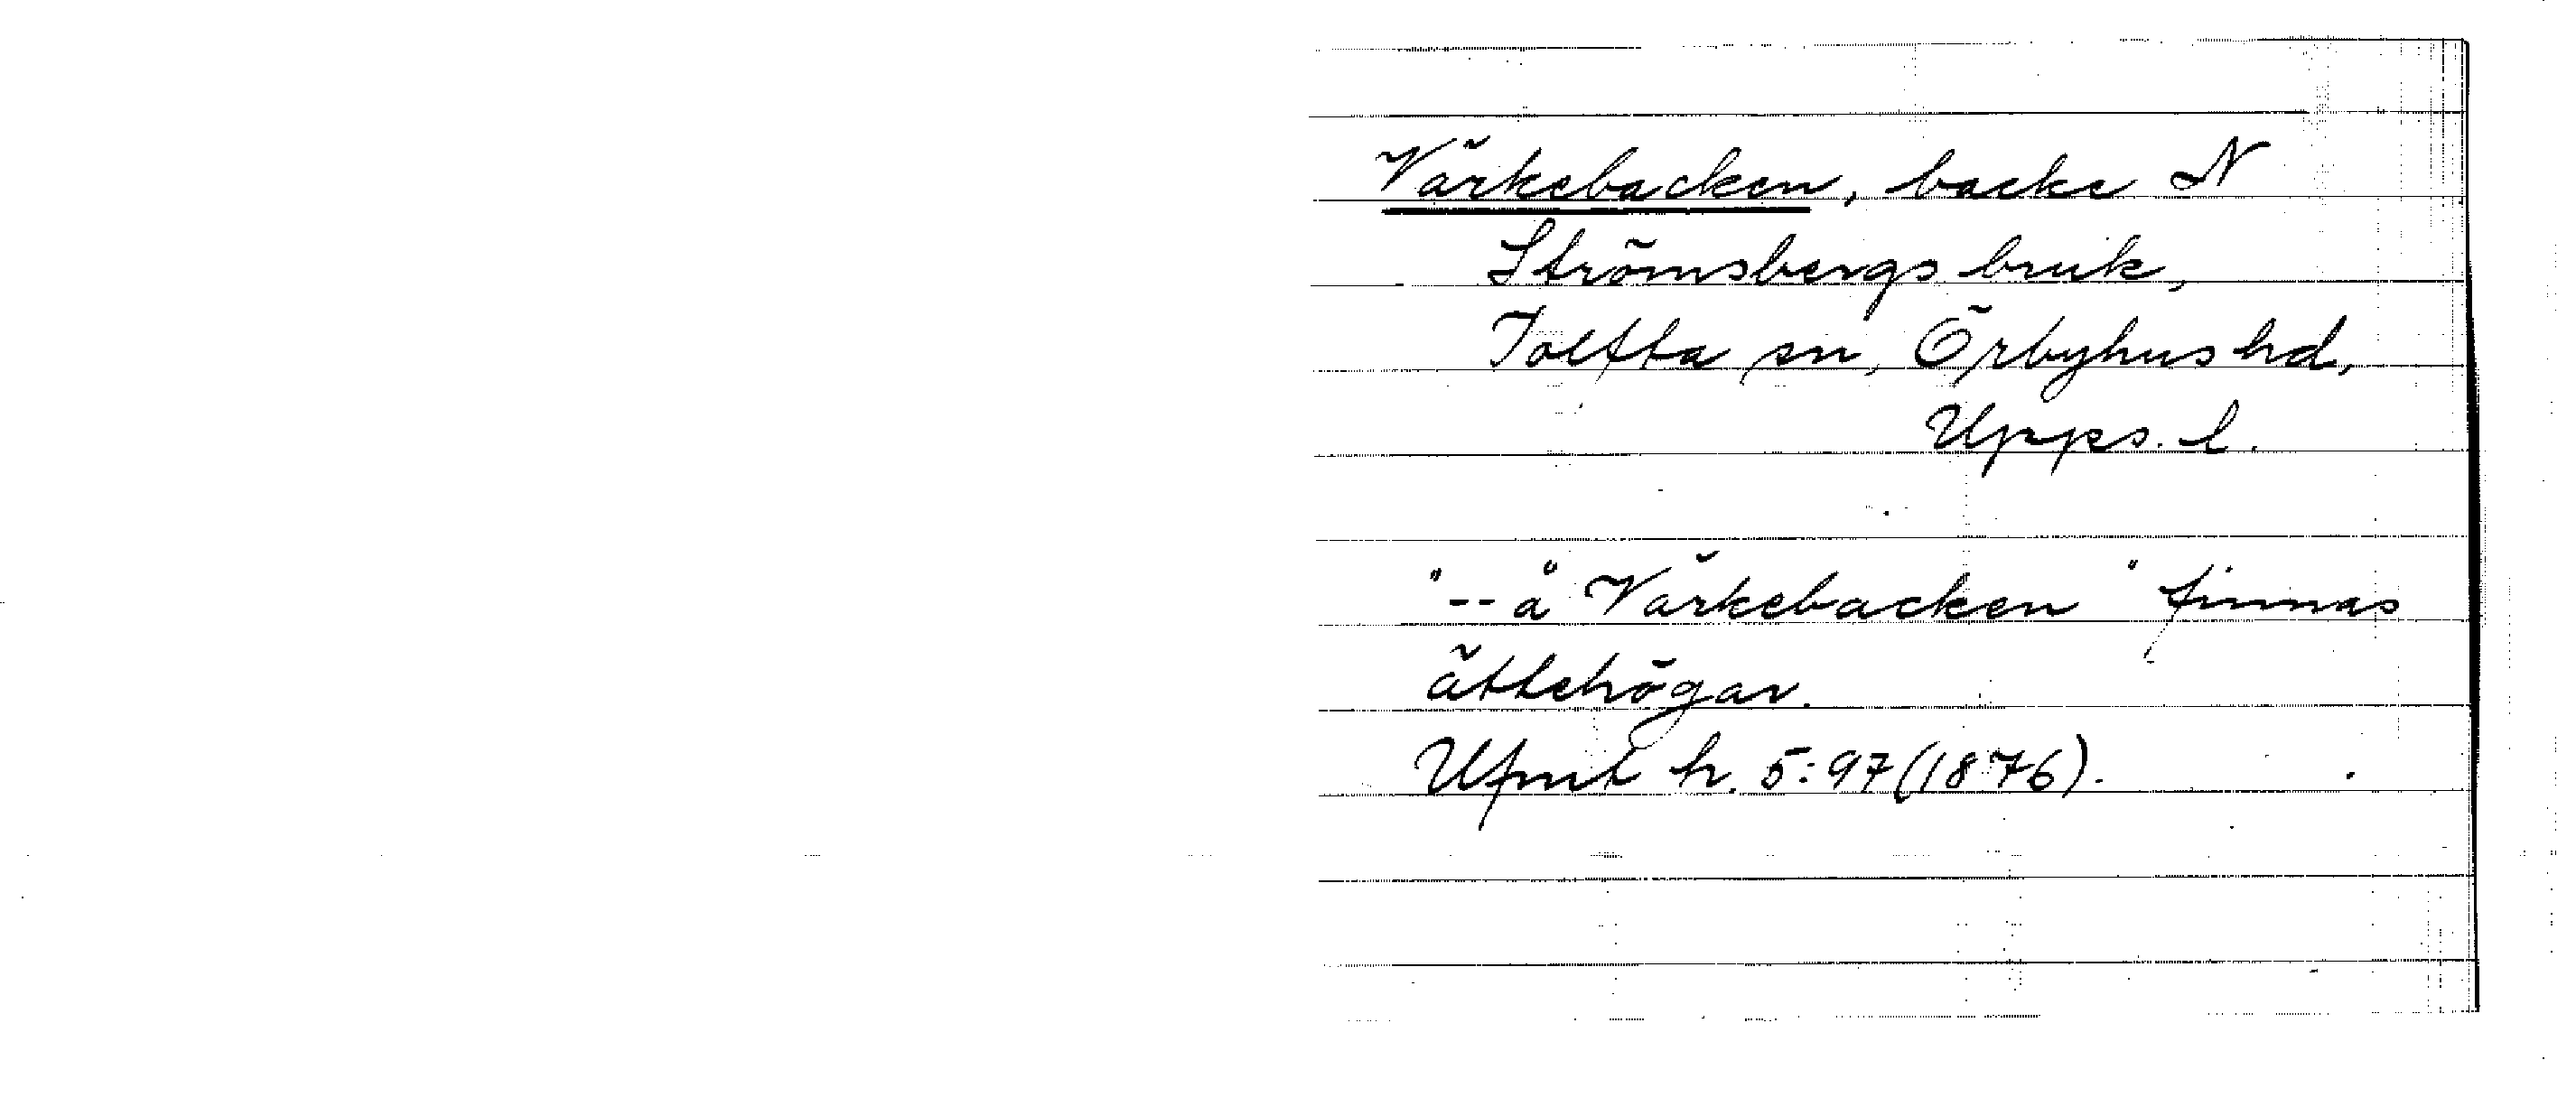 Värkebacken, backe N
Strömsbergs bruk,
Tolfta sn, Örbyhus hd,
Upps. l.
"-- å Värkebacken" finnas
ättehögar.
Ufmt h. 5:97 (1876).